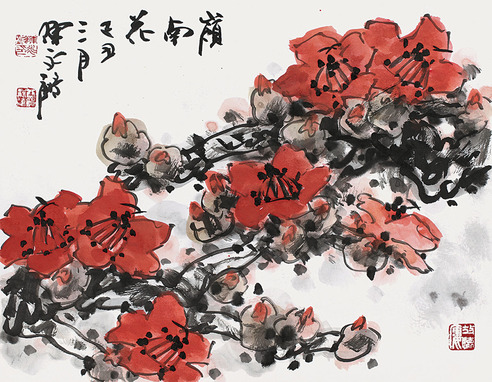 嶺南花
己丑
三月
陳永鏘